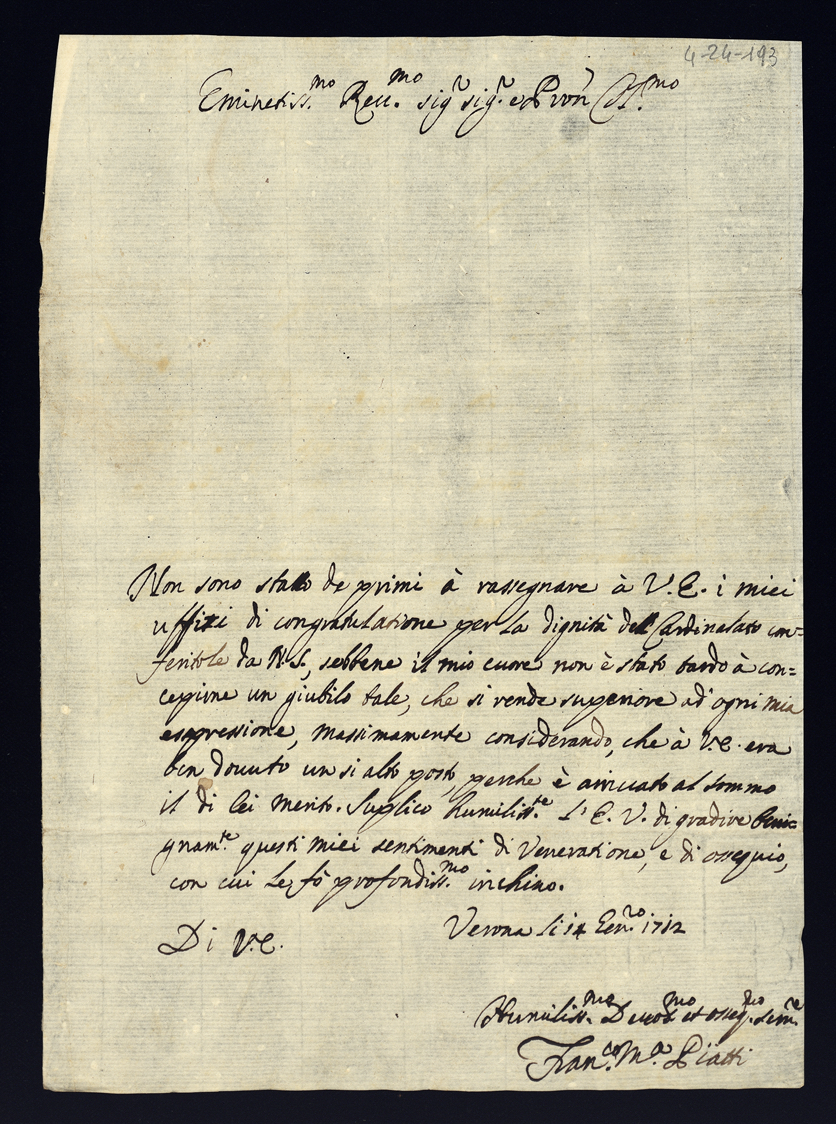 4-24-193
Eminetiss.mo Reu.mo sig.r sig.r e Pron Col.mo
Non sono stato de primi à rassegnare à V.E. i miei
uffizi di congratulatione per la dignità del Cardinalato con=
feritole da N.S., sebbene il mio cuore non è stato tardo à con=
cepirne un giubilo tale, che si rende superiore ad' ogni mia
espressione, massimamente considerando, che à V.E. era
ben douuto un si alto posto perche è arriuato al sommo
il di lei merito. Suplico humiliss.te l'E.V. di gradire beni=
gnam.te questi miei sentimenti di Veneratione, e di ossequio,
con cui le fò profondiss.mo inchino.
Di V.E.
Verona li 14 Gen.ro 1712
Humiliss.mo Deuot.mo et osseq.mo Seru.re
Fran.co M.a Piatti